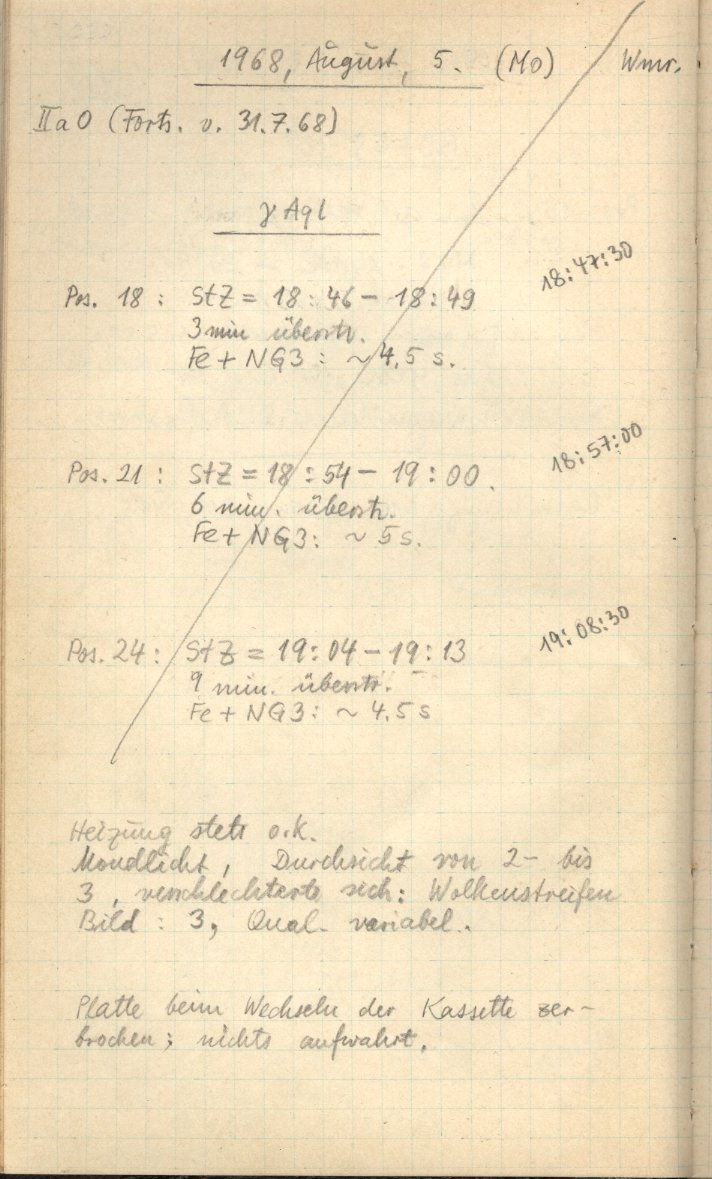 1968, August, 5. (Mo) Wmr.
IIaO (Forts. v. 31.7.68)
γ Aql
18:47:30
Pos. 18 : StZ = 18:46 - 18:49
3 min überstr.
Fe + NG3 : ~ 4.5 s.
18:57:00
Pos. 21 : StZ = 18:54 - 19:00.
6 min. überstr.
Fe + NG3: ~ 5 s.
19:08:30
Pos. 24 : StZ = 19:04 - 19:13
9 min. überstr.
Fe + NG3: ~ 4.5 s
Heizung stets o.k.
Mondlicht, Durchsicht von 2- bis
3, verschlechterte sich: Wolkenstreifen
Bild : 3, Qual. variabel.
Platte beim Wechseln der Kassette zer-
brochen; nichts aufwahrt.